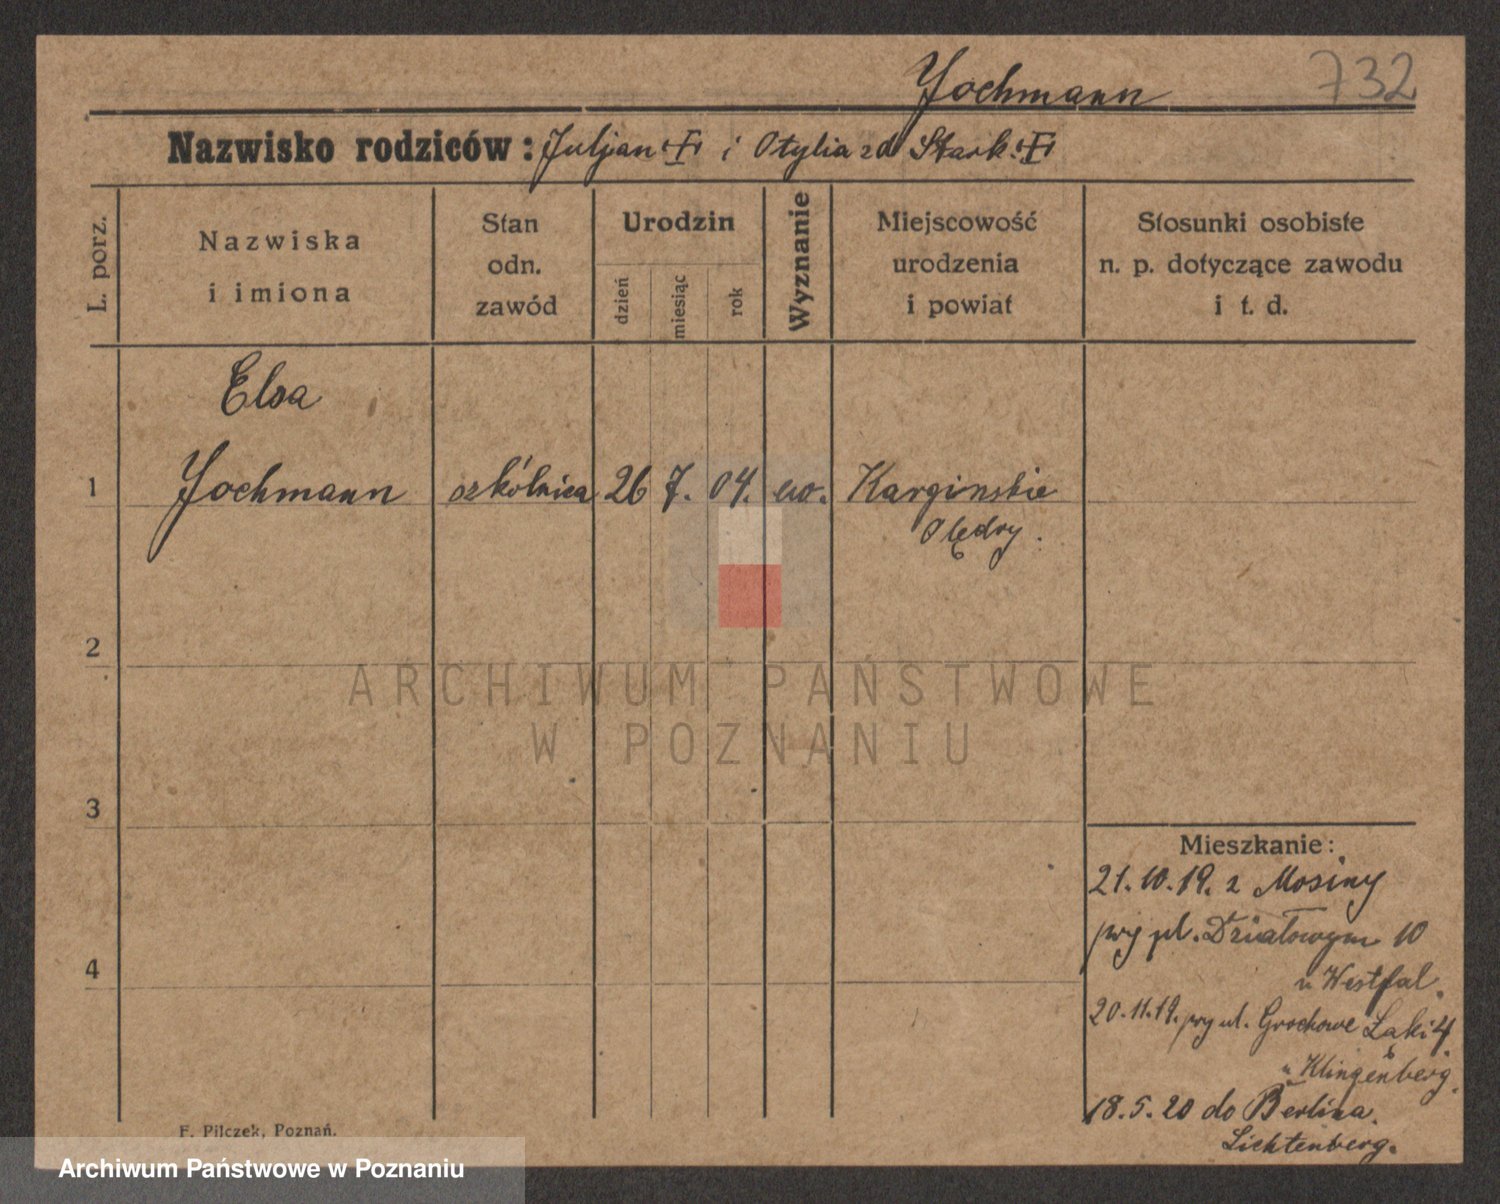 Jochmann 732
Nazwisko rodziców: Juljan i Otylia zd Stark.
L. porz.
Nazwiska
i imiona
Stan
odn.
zawód
Urodzin
dzień
miesiąc
rok
Wyznanie
Miejscowość
urodzenia
i powiat
Stosunki osobiste
n. p. dotyczące zawodu
i t. d.
Elsa
1 Jochmann szkólnica 26 7. 04. ew. Karginskie
Olędry.
2
3
4
Mieszkanie:
21.10.19. z Mosiny
przy pl. Działowym 10
u Westfal.
20.11.19. przy ul. Grochowe Łąki 4.
u Klingenberg.
18.5.20 do Berlina.
Lichtenberg.
F. Pilczek, Poznań.
ARCHIWUM PAŃSTWOWE
W POZNANIU
Archiwum Państwowe w Poznaniu